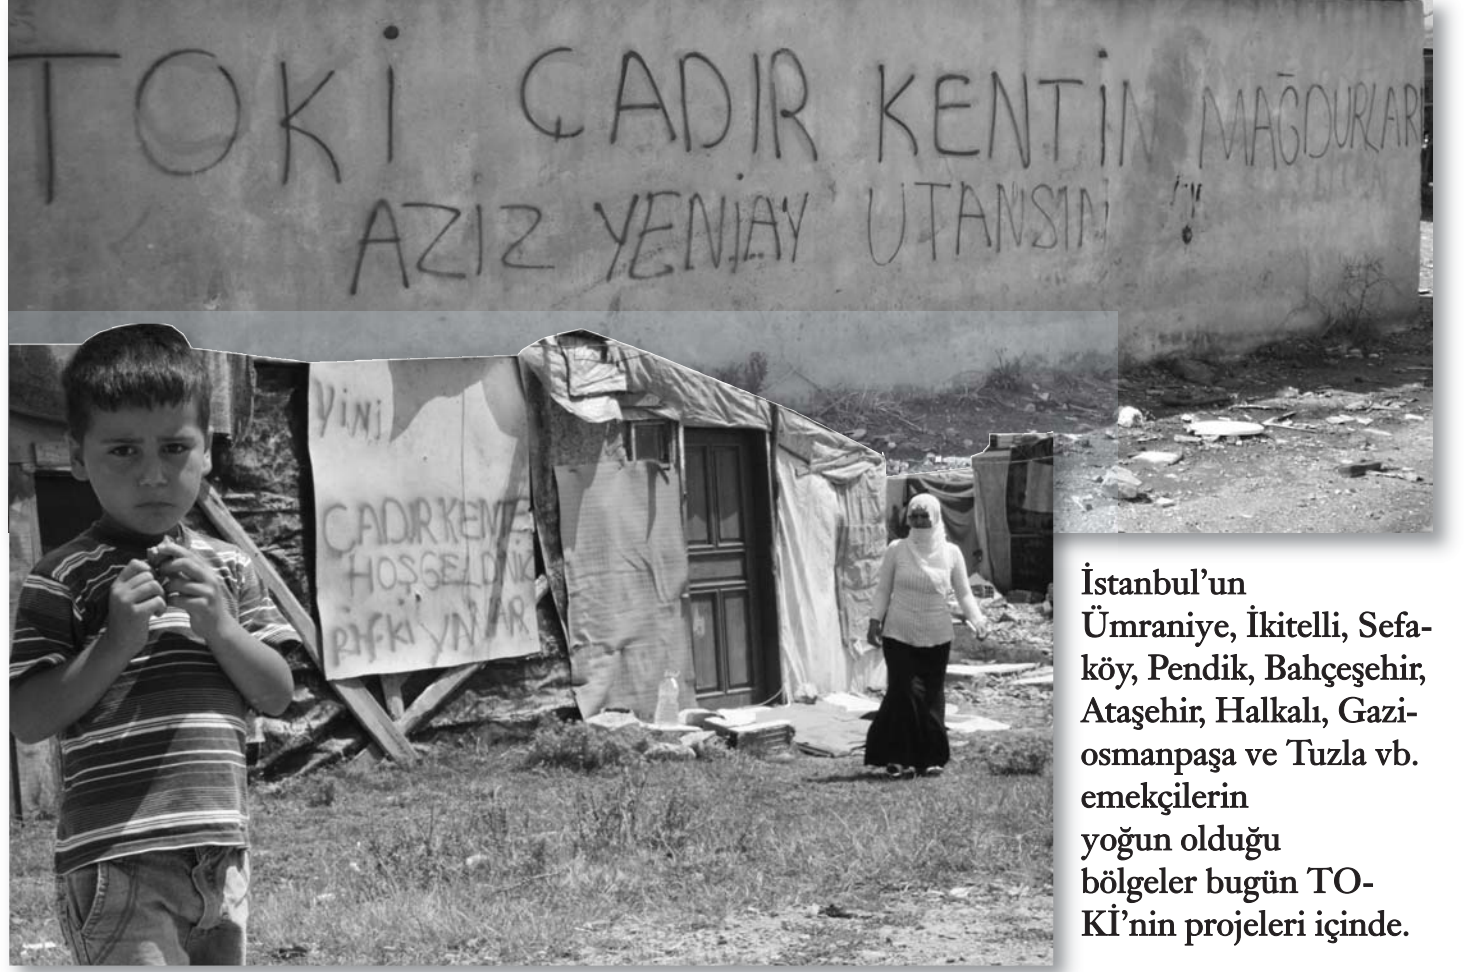 TOKİ ÇADIR KENTİN MAĞDURLARI
AZİZ YENİAY UTANSIN !!
YİNİ
ÇADIRKENTE
HOŞGELDİNİZ
RIFKI YNAR
İstanbul’un
Ümraniye, İkitelli, Sefa-
köy, Pendik, Bahçeşehir,
Ataşehir, Halkalı, Gazi-
osmanpaşa ve Tuzla vb.
emekçilerin
yoğun olduğu
bölgeler bugün TO-
Kİ’nin projeleri içinde.